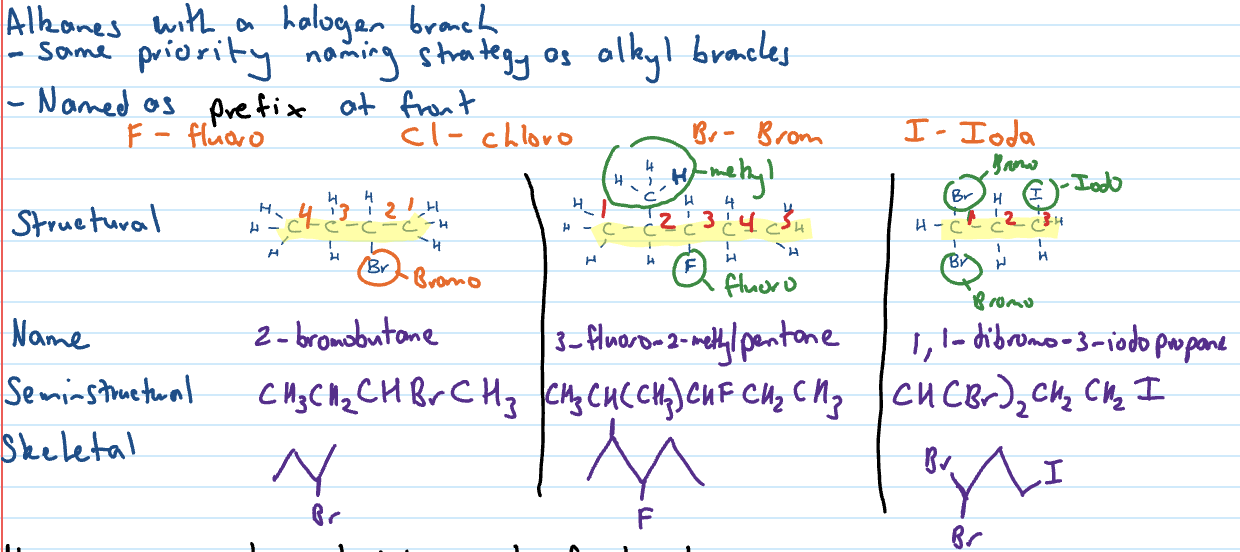 Alkanes with a halogen branch
- Same priority naming strategy as alkyl branches
- Named as prefix at front
F - fluoro Cl - chloro Br - Brom I - Ioda
Structural
H H H H
H - C 4 - C 3 - C 2 - C 1 - H
H H Br H
Bromo
H
H C H methyl
H H H H H
H - C 1 - C 2 - C 3 - C 4 - C 5 - H
H H F H H
fluoro
Bromo Iodo
Br H I
H - C 1 - C 2 - C 3 - H
Br H H
Bromo
Name 2-bromobutane 3-fluoro-2-methylpentane 1,1-dibromo-3-iodopropane
Semi-structural CH3CH2CHBrCH3 CH3CH(CH3)CHFCH2CH3 CH(Br)2CH2CH2I
Skeletal
Br
F
Br I
Br